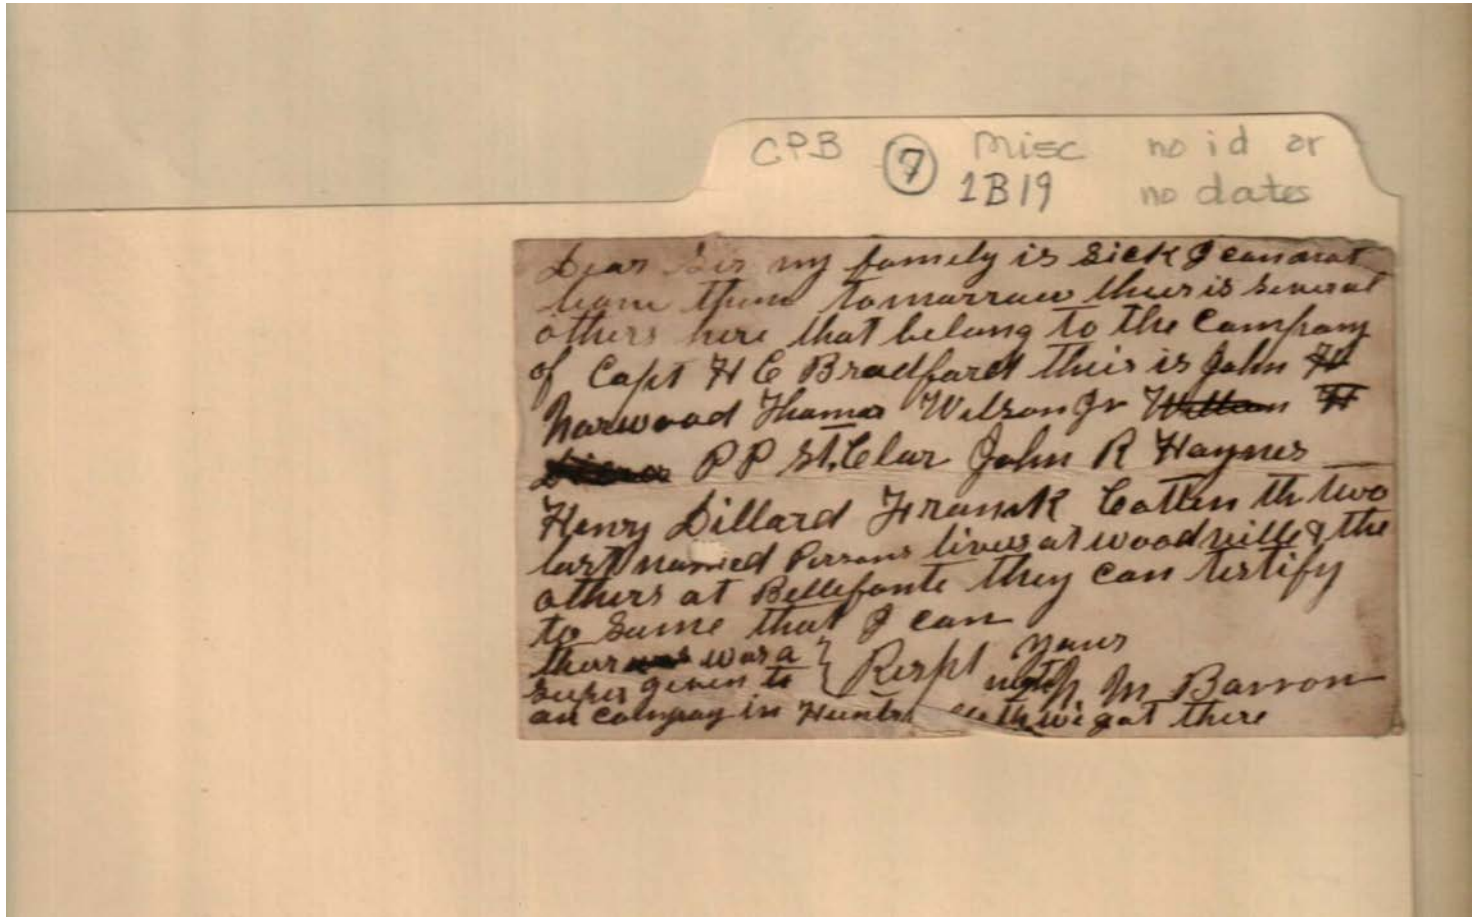 CPB ⑦ Misc no id or
1B19 no dates
Dear Sir my family is sick I cannot
leave them tomorrow ther is several
others here that belong to the Company
of Capt H C Bradford ther is John
Norwood Thomas Wilson Jr
P P St. Clar John R Haynes
Henry Dillard Frank Cotten th two
last named Persons lives at woodville & the
others at Bellefonte they can testify
to same that I can
thar was a
super given to
Respt yours
M Barron
an compay in Hunts th we got there